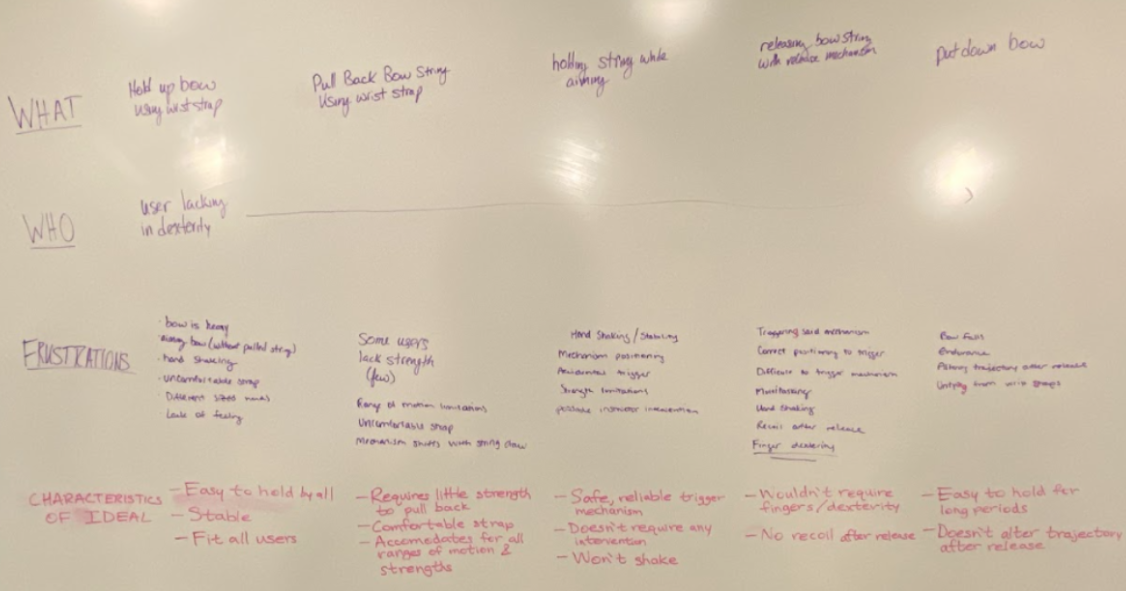 WHAT
Hold up bow
using wrist strap
Pull Back Bow String
Using wrist strap
holding string while
aiming
releasing bow string
with release mechanism
put down bow
WHO
user lacking
in dexterity
FRUSTRATIONS
· bow is heavy
bow (without pulled string)
· hand shaking
· uncomfortable strap
· Different sized hands
Lack of feeling
Some users
lack strength
(few)
Range of motion limitations
Uncomfortable strap
Mechanism shifts with string draw
Hand Shaking/Stability
Mechanism positioning
Accidental trigger
Strength limitations
possible instructor intervention
Triggering said mechanism
Correct positioning to trigger
Difficult to trigger mechanism
Multitasking
Hand Shaking
Recoil after release
Finger dexterity
Bow falls
endurance
trajectory after release
from wrist straps
CHARACTERISTICS
OF IDEAL
- Easy to hold by all
- Stable
- Fit all users
- Requires little strength
to pull back
- Comfortable strap
- Accomedates for all
ranges of motion &
strengths
- Safe, reliable trigger
mechanism
- Doesn't require any
intervention
- Won't shake
- Wouldn't require
fingers/dexterity
- No recoil after release
- Easy to hold for
long periods
- Doesn't alter trajectory
after release